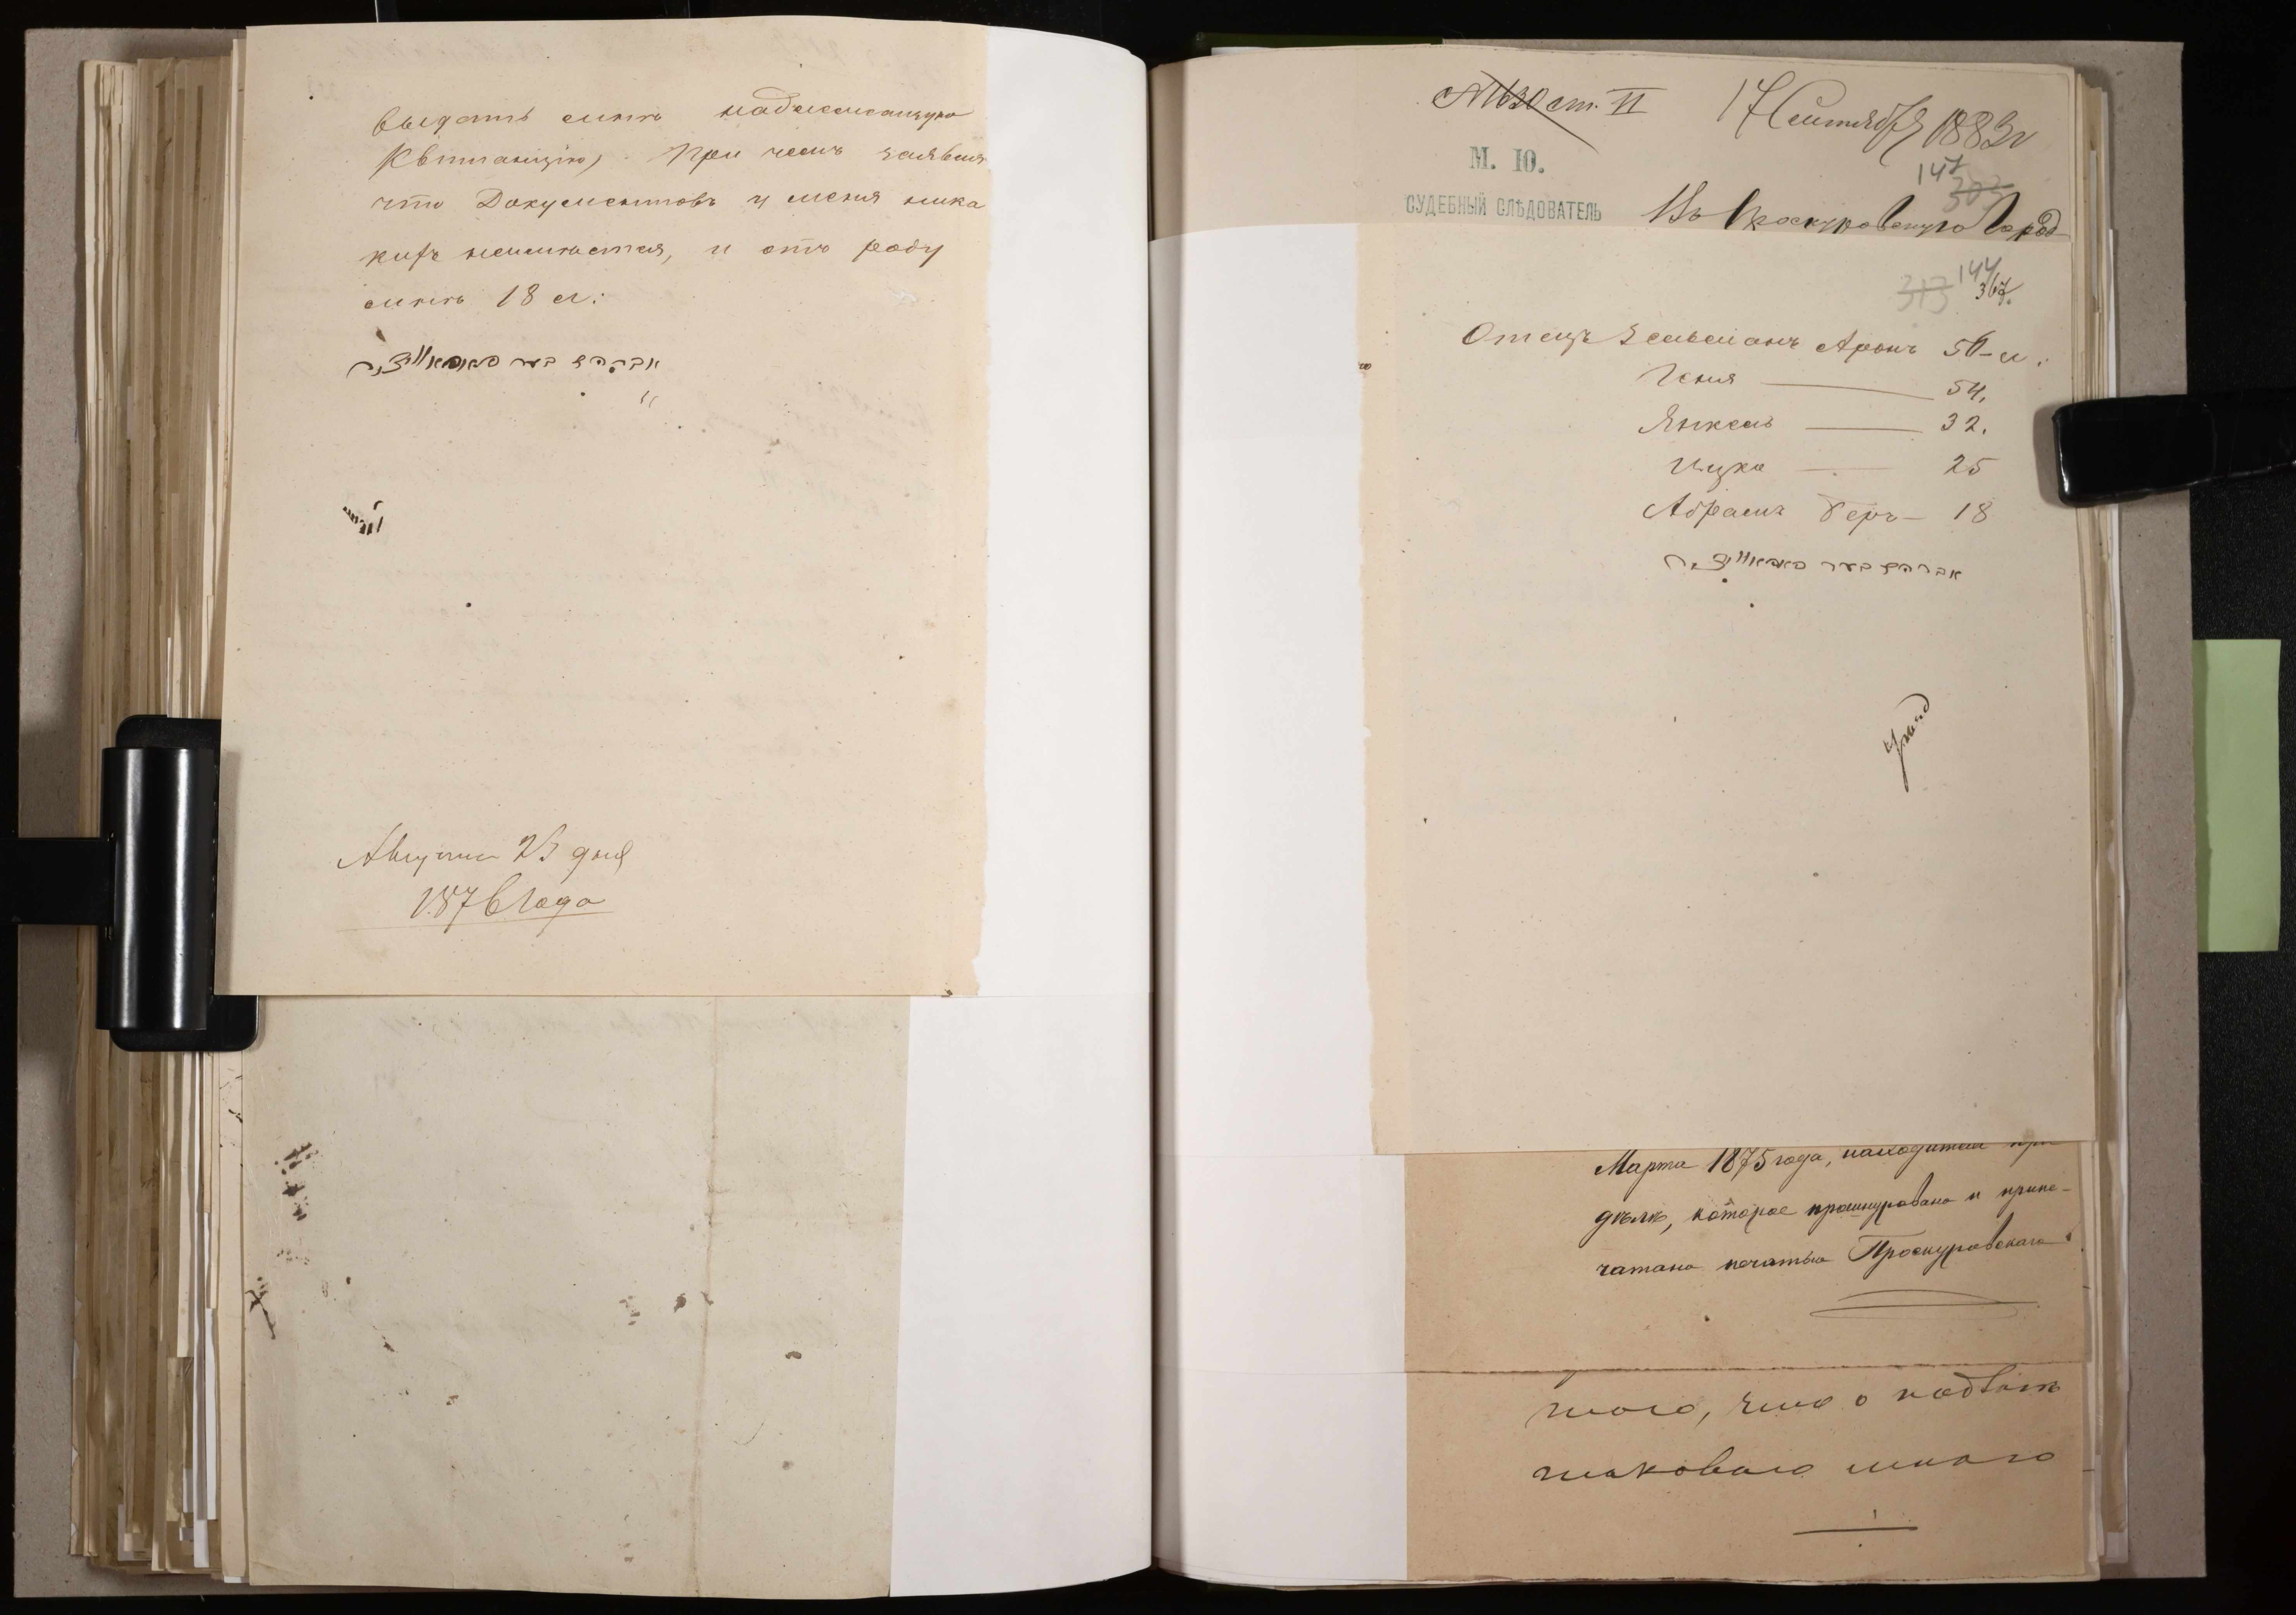 выдать мнѣ надлежащую
Квитанцію, При чемъ заявляю
что Документовъ у меня ника
кихъ неимѣется, и отъ роду
мнѣ 18 л:
Августа 23 дня
1876 года
№ 1630 ст. VI
17 Сентября 1883 г
М. Ю.
147
303
СУДЕБНЫЙ СЛѢДОВАТЕЛЬ
Въ Проскуровскую Город
144
313 367.
Отецъ Зельманъ Аронъ 56 л:
Геня 54.
Янкель 32.
Ицко 25
Абрамъ Беръ 18
Марта 1875 года, находится при
дѣлѣ, которое прошнуровано и припе-
чатано печатью Проскуровскаго
того, что о
таковаго много